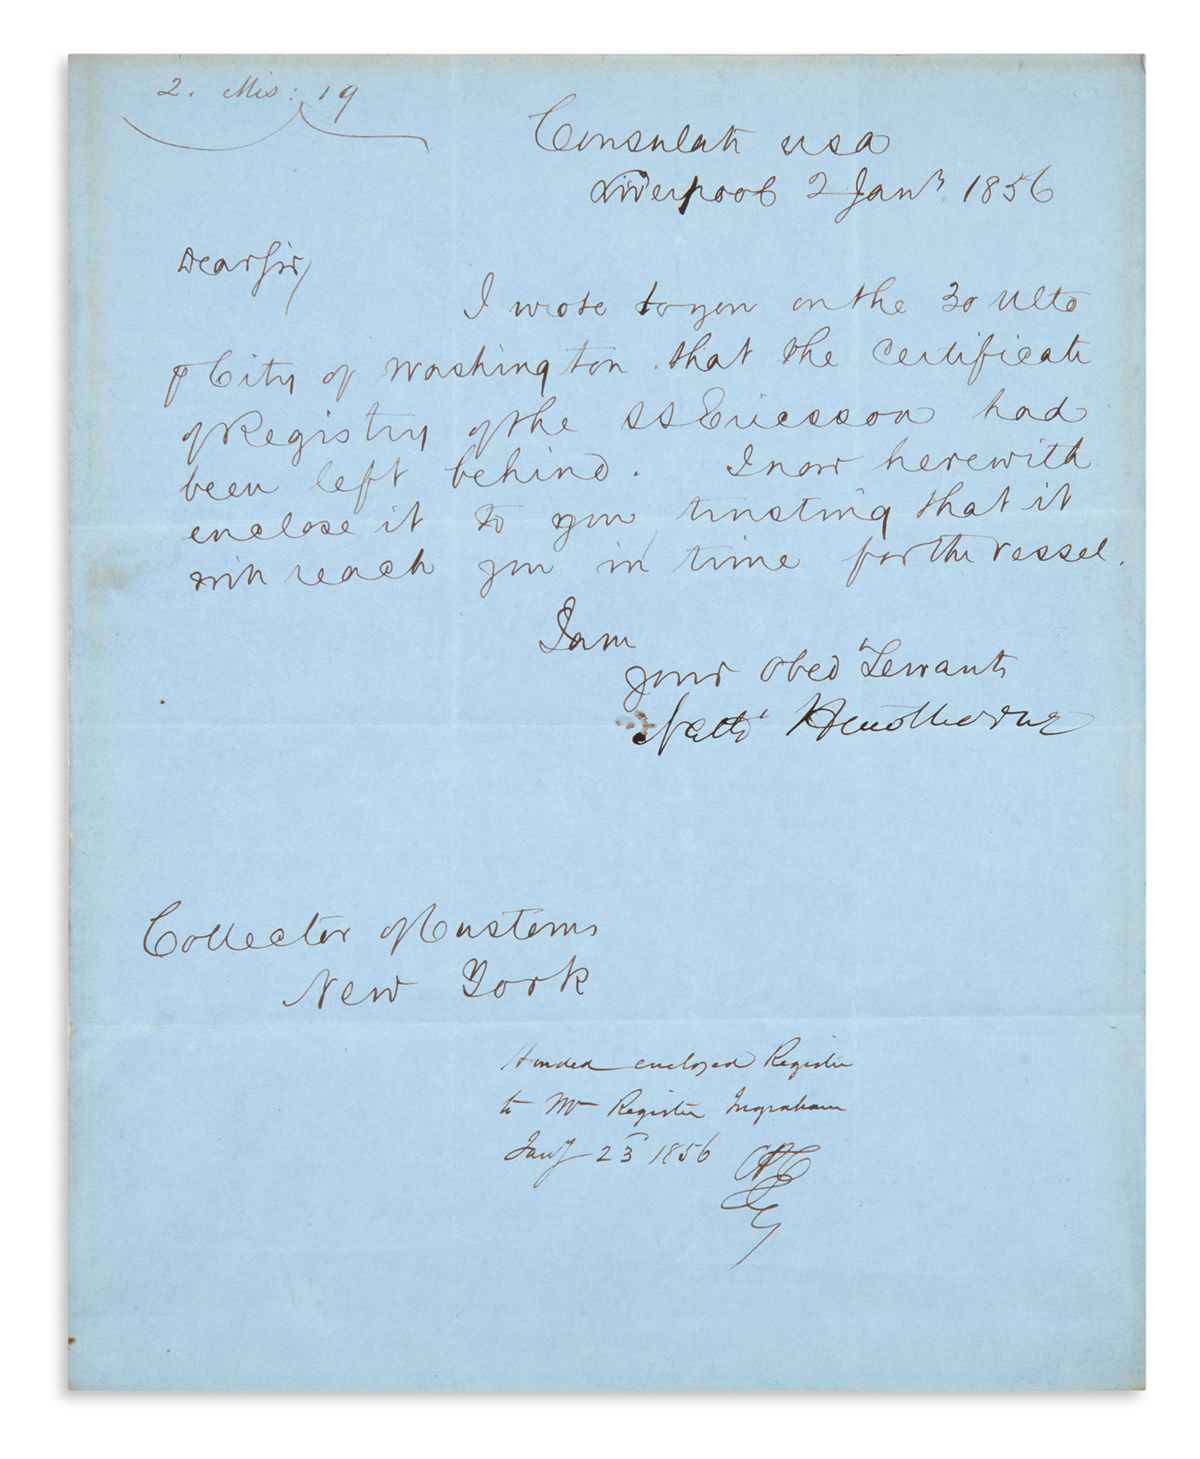 2. Mis: 19
Consulate USA
Liverpool 2 Jany 1856
Dear Sir,
I wrote to you on the 30 Ulto
p City of Washington that the Certificate
of Registry of the SS Ericsson had
been left behind. I now herewith
enclose it to you, trusting that it
will reach you in time for the vessel.
I am
your Obed Servant
Nathl Hawthorne
Collector of Customs
New York
Handed enclosed Register
to Mr Register Ingraham
Jany 23 1856